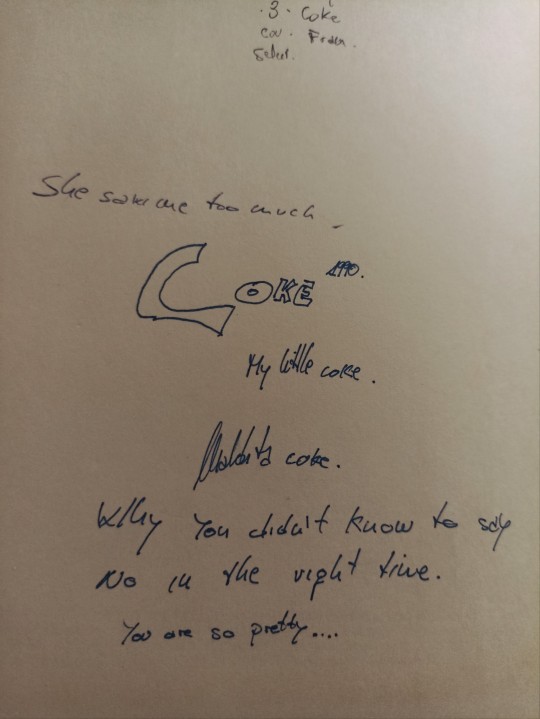 .3. Coke
cov.
Select.
She saw me too much.
COKE 1990.
My little coke.
Maldita coke.
Why You didn't know to say
No in the right time.
You are so pretty....